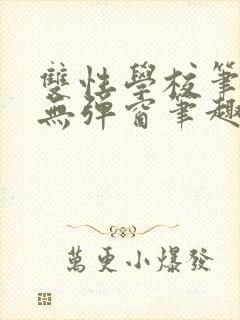 雙性學校筆
無彈窗筆趣
萬更小爆發